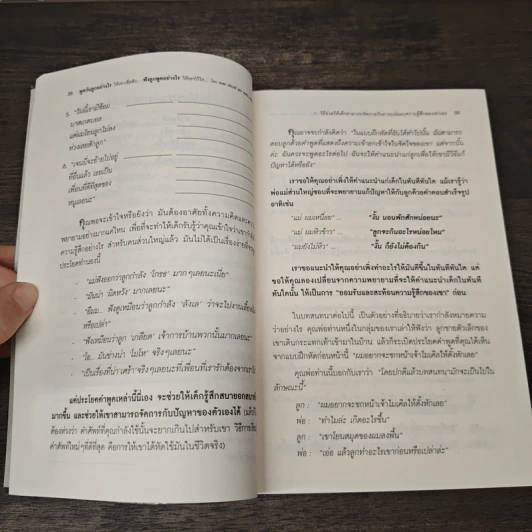 38 พูดกับลูกอย่างไร ให้เขาเชื่อฟัง ฟังลูกพูดอย่างไร ให้เขาไว้ใจ
5. "วันนี้เรามีซ้อม
บาสเกตบอล
แต่ผมโยนลูกไม่ลง
ห่วงเลยสักลูก"
6. "เจนนี่จะย้ายไปอยู่
ที่อื่นแล้ว เธอเป็น
เพื่อนที่ดีที่สุดของ
หนูเลยนะ"
คุณพอจะเข้าใจหรือยังว่า มันต้องอาศัยทั้งความคิดและความ
พยายามอย่างมากแค่ไหน เพื่อที่จะทำให้เด็กรับรู้ว่าคุณเข้าใจว่าเขากำลัง
รู้สึกอย่างไร สำหรับคนส่วนใหญ่แล้ว มันไม่ได้เป็นเรื่องง่ายที่จะ
ประโยคทำนองนี้
- "แม่ฟังออกว่าลูกกำลัง 'โกรธ' มากๆ เลยนะเนี่ย"
- "มันน่า 'ผิดหวัง' มากเลยนะ"
- "อืมม.. ฟังดูเหมือนว่าลูกกำลัง 'ลังเล' ว่าจะไปงานเลี้ยง
หรือเปล่า"
- "ฟังเหมือนว่าลูก 'เกลียด' เจ้าการบ้านพวกนั้นมากเลยนะ"
- "โอ.. มันช่างน่า 'โมโห' จริงๆ เลยนะ"
- "เป็นเรื่องที่น่าเศร้า จริงๆ เลยนะที่เพื่อนที่เรารักต้องจากเรา
แต่ประโยคคำพูดเหล่านี้นี่เอง จะช่วยให้เด็กรู้สึกสบายอกสบายใจ
มากขึ้น และช่วยให้เขาสามารถจัดการกับปัญหาของตัวเองได้
ต้องห่วงว่า คำศัพท์ที่คุณกำลังใช้นั้นจะยากเกินไปสำหรับเขา วิธีการเรียน
คำศัพท์ใหม่ๆ ที่ดีที่สุด คือการให้เขาได้หัดใช้มันในชีวิตจริง)
1. วิธีช่วยให้เด็กสามารถจัดการกับอารมณ์และความรู้สึกของเขาเอง 39
คุณอาจจะกำลังคิดว่า "ในแบบฝึกหัดที่ฉันได้ทำไปนั้น ฉันสามารถ
ตอบลูกด้วยคำพูดที่แสดงถึงความเข้าอกเข้าใจในจิตใจของเขา แต่จากนั้น
ล่ะ ฉันควรจะพูดอะไรต่อไป ฉันจะให้คำแนะนำแก่ลูกเพื่อให้เขามีวิธีแก้
ปัญหาได้หรือยัง"
เราขอให้คุณอย่าเพิ่งให้คำแนะนำแก่เด็กในทันทีทันใด แม้เรารู้ว่า
พ่อแม่ส่วนใหญ่ชอบที่จะพยายามแก้ปัญหาให้กับลูกด้วยคำตอบสำเร็จรูป
อาทิเช่น
"แม่ ผมเหนื่อย" ... "งั้น นอนพักสักหน่อยนะ"
"แม่ ผมหิวข้าว" ... "ลูกจะกินอะไรหน่อยไหม"
"ผมยังไม่หิว" ... "งั้น ก็ยังไม่ต้องกิน"
เราขอแนะนำให้คุณอย่าเพิ่งทำอะไรให้มันดีขึ้นในทันทีทันใด แต่
ขอให้คุณลองเปลี่ยนจากความพยายามที่จะให้คำแนะนำเด็กในทันที
ทันใดนั้น ให้เป็นการ "ยอมรับและสะท้อนความรู้สึกของเขา" ก่อน
ในบทสนทนาต่อไปนี้ เป็นตัวอย่างที่อธิบายว่าเรากำลังหมายความ
ว่าอย่างไร คุณพ่อท่านหนึ่งในกลุ่มของเราเล่าให้ฟังว่า ลูกชายตัวเล็กของ
เขาเดินกระแทกเท้าเข้ามาในบ้าน แล้วก็ระเบิดประโยคคำพูดที่คุณได้เห็น
จากแบบฝึกหัดก่อนหน้านี้ "ผมอยากจะชกหน้าเจ้าไมเคิลให้ตั้งพักเลย"
คุณพ่อท่านนี้บอกกับเราว่า "โดยปกติแล้วบทสนทนามักจะเป็นไปใน
ลักษณะนี้"
ลูก : "ผมอยากจะชกหน้าเจ้าไมเคิลให้ตั้งพักเลย"
พ่อ : "ทำไมล่ะ เกิดอะไรขึ้น"
ลูก : "เขาโยนสมุดของผมลงพื้น"
พ่อ : "เอ่อ แล้วลูกทำอะไรเขาก่อนหรือเปล่าล่ะ"